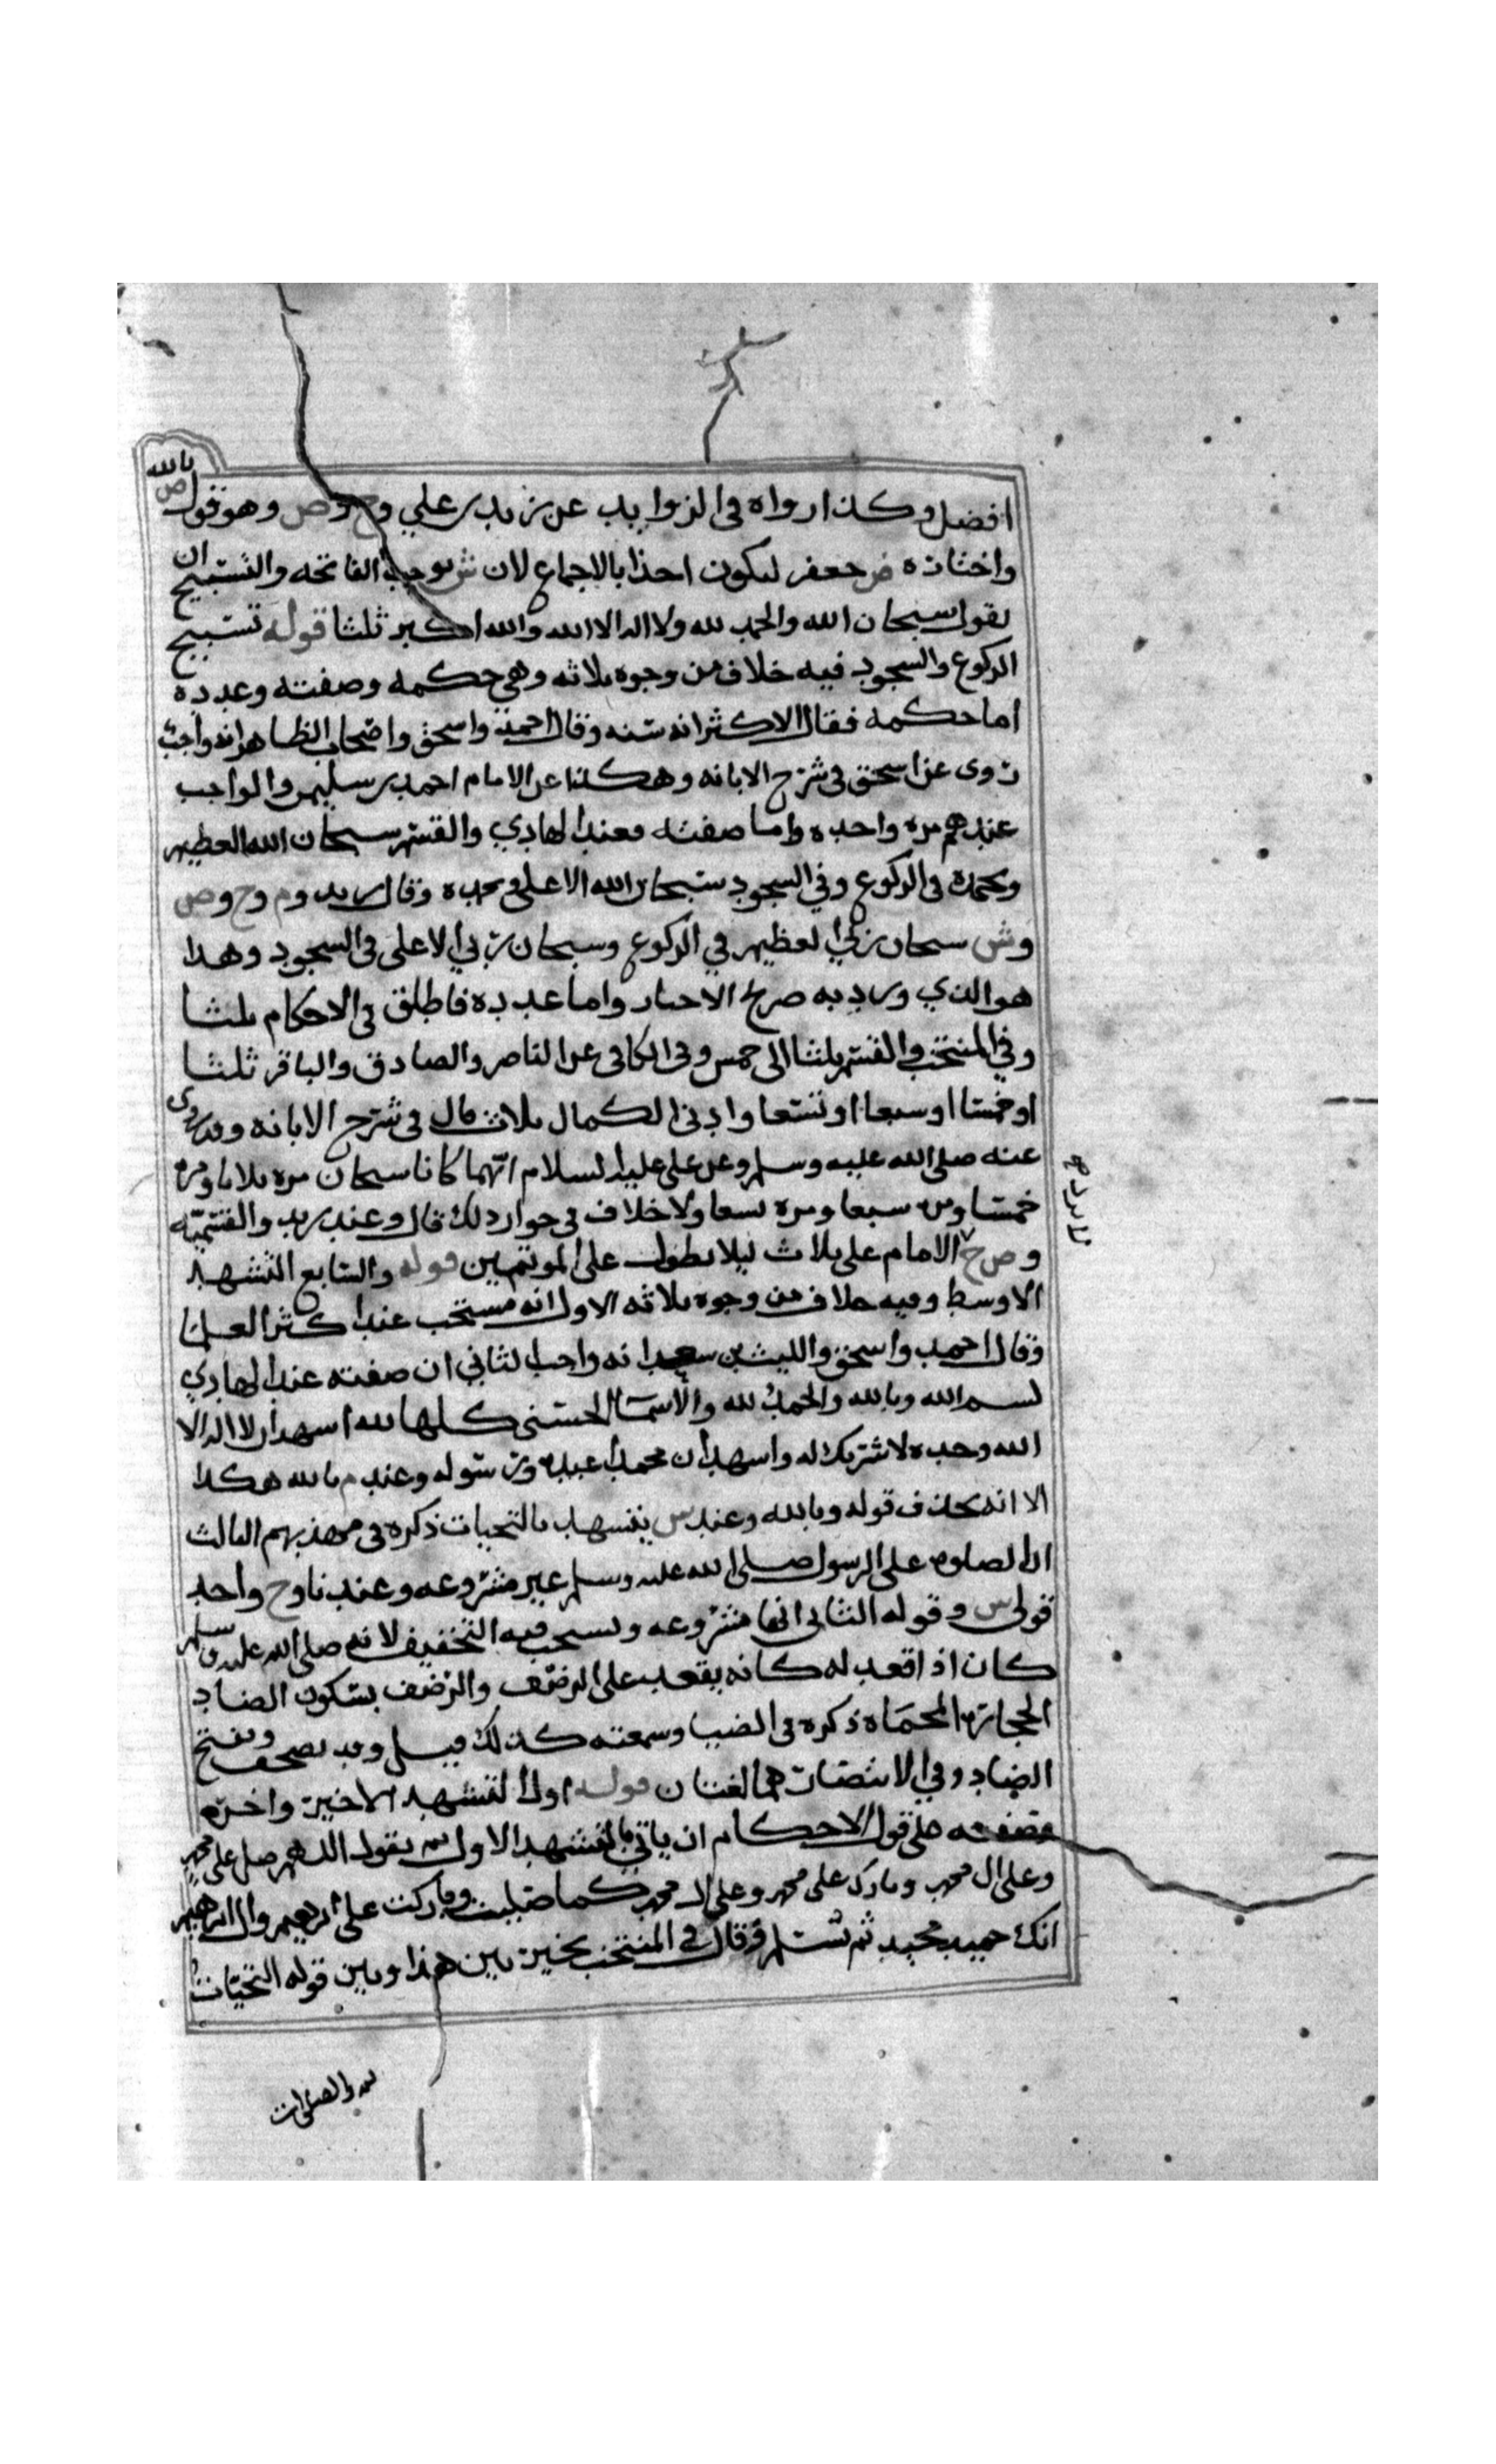 بالله
افضل وكذا رواه في الزوايد عن زيد بن علي وح وص وهو قول ص
واختاره ض جعفر ليكون احذا بالاجماع لان ش يوجب الفاتحه والتسبيح ان
يقول سبحان الله والحمد لله ولا اله الا الله والله اكبر ثلثا قوله تسبيح
الركوع والسجود فيه خلاف من وجوه ثلاثه وهي حكمه وصفته وعدده
اما حكمه فقال الاكثر انه سنه وقال احمد واسحق واصحاب الظاهر انه واجب
روى عن اسحق في شرح الابانه وهكذا عن الامام احمد بن سليمن والواجب
عندهم مره واحده واما صفته فعند الهادي والقسم سبحان الله العظيم
وبحمده في الركوع وفي السجود سبحان الله الاعلى وبحمده وقال زيد وم وح وص
وش سبحان ربي العظيم في الركوع وسبحان ربي الاعلى في السجود وهذا
هو الذي ورد به صريح الاخبار واما عدده فاطلق في الاحكام ثلثا
وفي المنتخب والقسم ثلثا الى خمس وفي الكافي عن الناصر والصادق والباقر ثلثا
او خمسا او سبعا او تسعا وادنى الكمال ثلاث قال في شرح الابانه وقد روى
عنه صلى الله عليه وسلم وعن علي عليه السلام انهما كانا سبحان مره ثلاثا ومره
خمسا ومره سبعا ومره تسعا ولا خلاف في جواز ذلك قال وعند زيد والقسميه
وص ح الامام على ثلاث ليلا يطول على المؤتمين قوله والسابع التشهد
الاوسط وفيه خلاف من وجوه ثلاثه الاول انه مستحب عند اكثر العلما
وقال احمد واسحق والليث بن سعد انه واجب الثاني ان صفته عند الهادي
بسم الله وبالله والحمد لله والاسما الحسنى كلها لله اشهد ان لا اله الا
الله وحده لا شريك له واشهد ان محمدا عبده ورسوله وعند م بالله هكذا
الا انه يحذف قوله وبالله وعند س يتشهد بالتحيات ذكره في مهذبهم الثالث
ان الصلوه على الرسول صلى الله عليه وسلم غير مشروعه وعند نا وح واحد
قولي س وقوله الثاني انها مشروعه ويستحب فيه التخفيف لانه صلى الله عليه وسلم
كان اذا قعد له كانه يقعد على الرضف والرضف بسكون الضاد
الحجاره المحماه ذكره في الضيا وسمعته كذلك قيل وقد يصحف ويفتح
الضاد وفي الانتصار هما لغتان قوله اولا التشهد الاخير واخره
فصفته على قول الاحكام ان ياتي بالتشهد الاول ثم يقول اللهم صل على محمد
وعلى ال محمد وبارك على محمد وعلى ال محمد كما صليت وباركت على ابرهيم وال ابرهيم
انك حميد مجيد ثم تسلم وقال في المنتخب يخير بين هذا وبين قوله التحيات
لله والصلوات